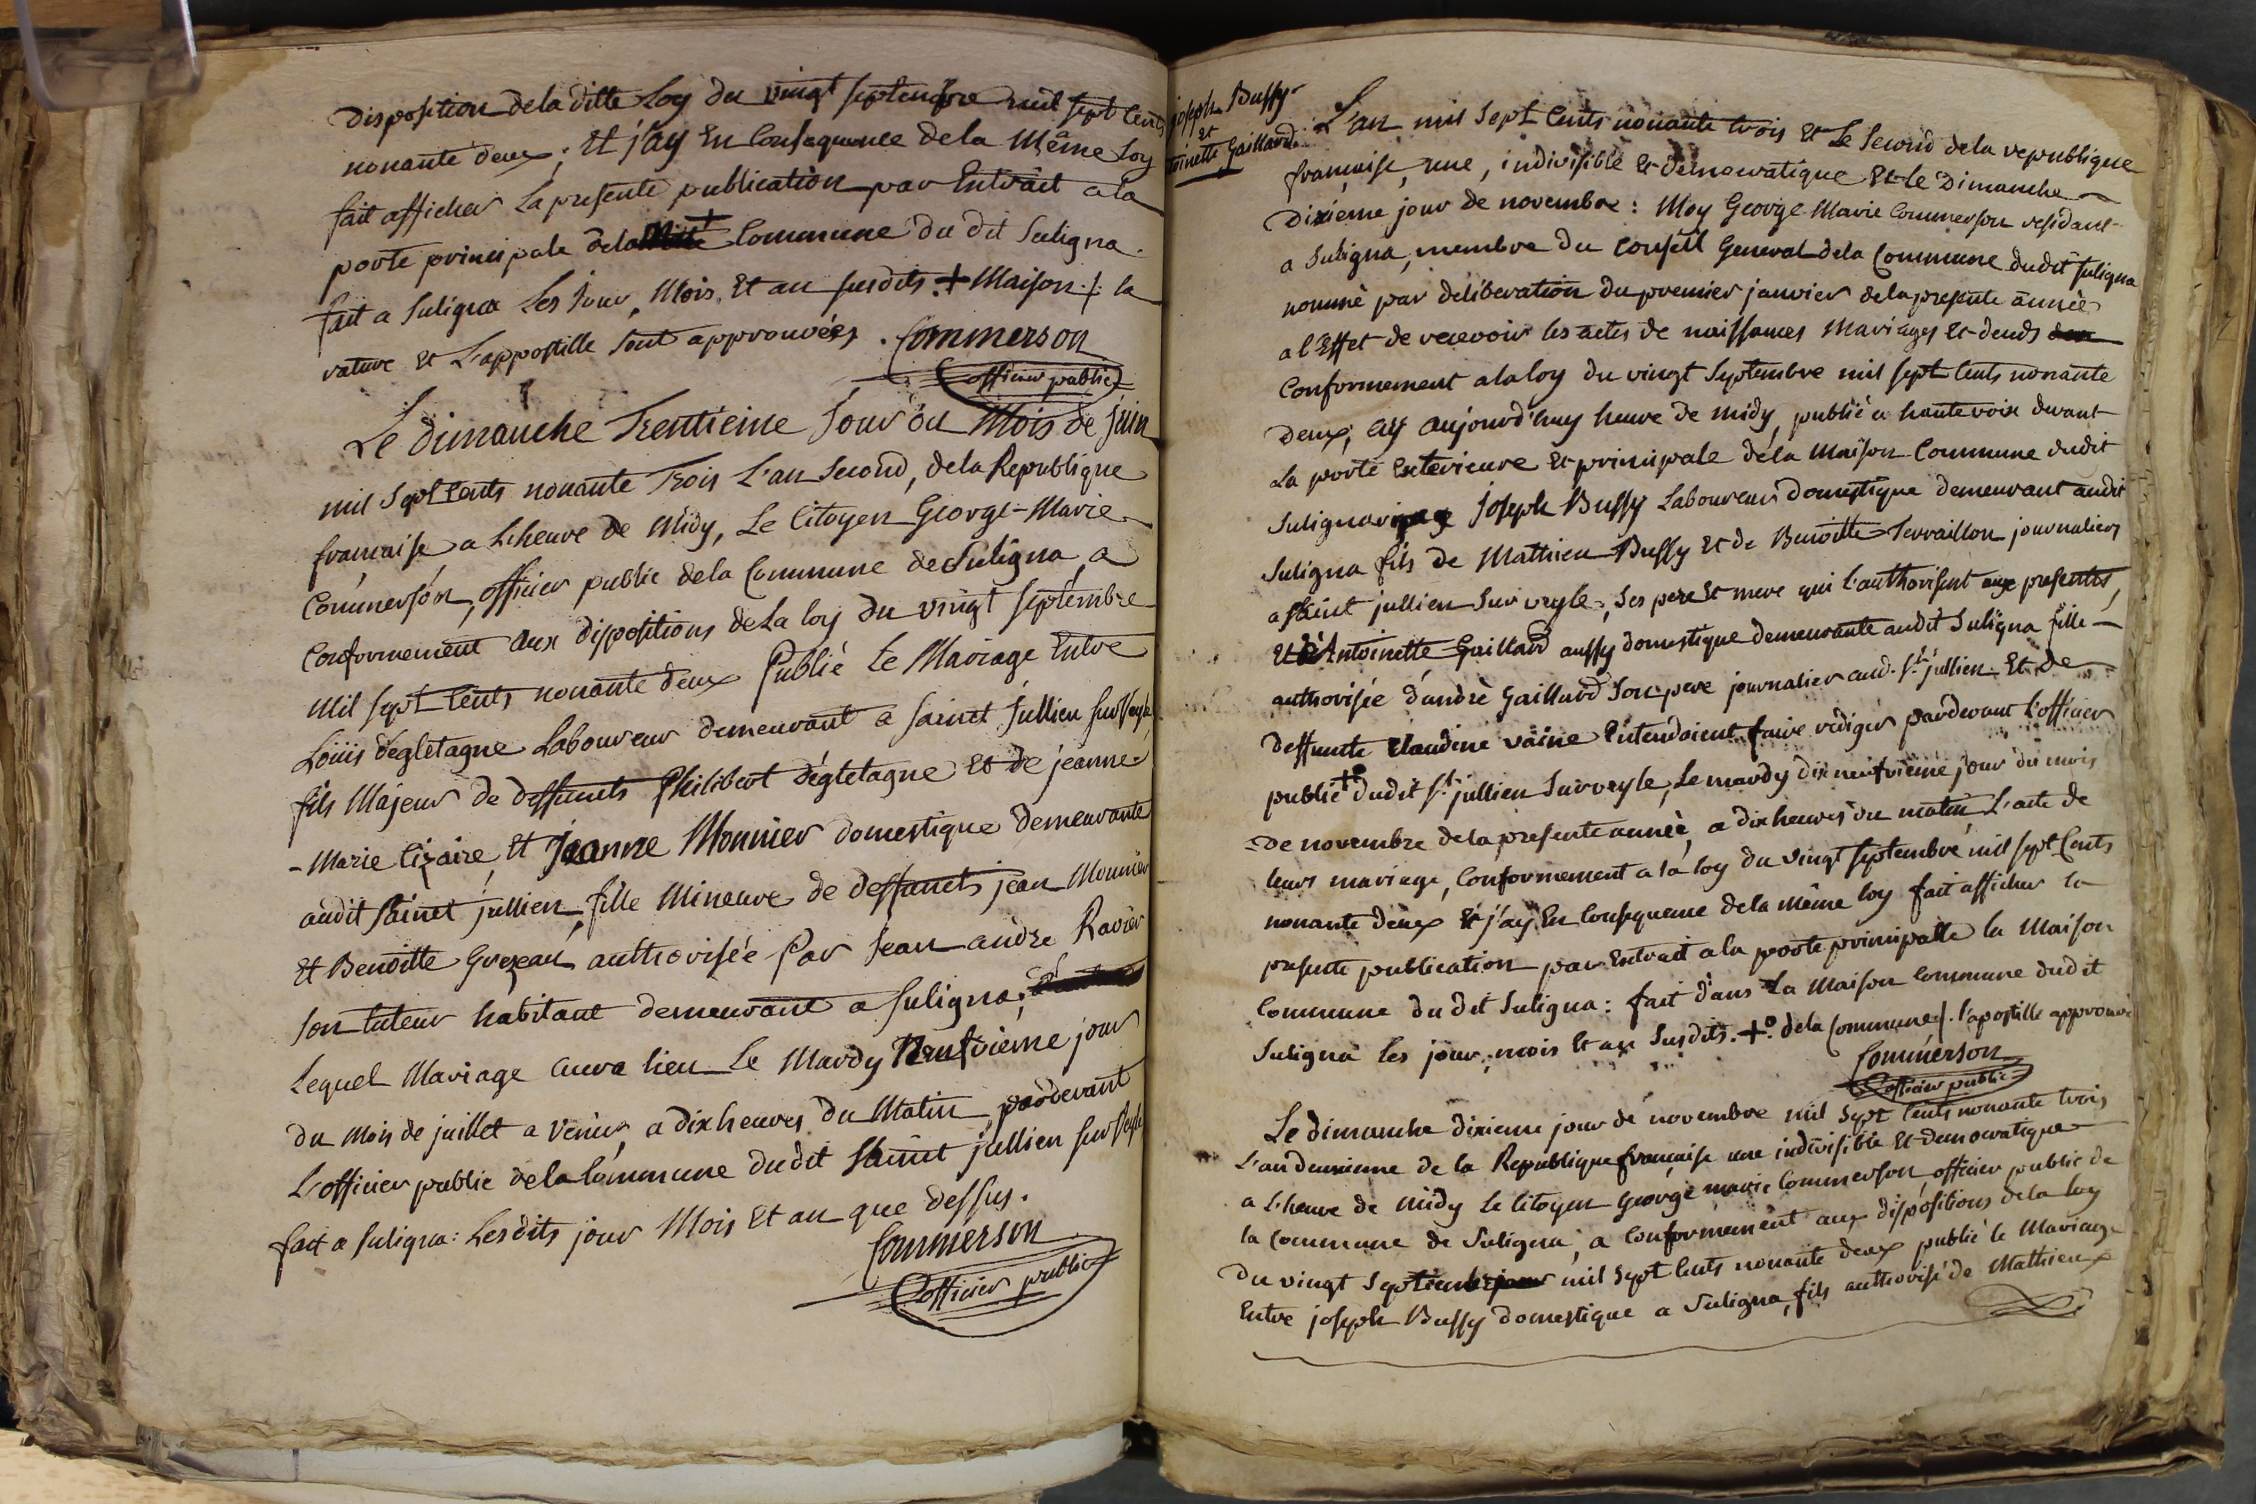 Disposition de la ditte Loy du vingt septembre mil sept cents
nonante deux; Et j'ay En Consequence de la Même Loy
fait afficher La presente publication par Extrait a la
porte principale de la + Commune du dit Suligna.
fait a Suligna Les Jour, Mois, Et an susdits. + Maison ./. la
rature Et L'appostille sont approuvées. Commerson
officier public
Le dimanche Trentieme Jour du Mois de juin
mil sept cents nonante Trois L'an second, de la Republique
francaise, a L'heure de Midy, Le Citoyen George-Marie
Commerson, officier public de la Commune de Suligna, a
Conformement aux dispositions de La loy du vingt septembre
mil sept cents nonante deux Publié Le Mariage Entre
Loüis dégletagne Laboureur demeurant a saint Jullien sur Veyle
fils Majeur de deffunts Philibert dégletagne Et de jeanne
- Marie Cizaire, Et Jeanne Monnier domestique demeurante
audit saint jullien, fille Mineure de deffunts jean Monnier
Et Benoitte Guezeau, authorisée Par Jean andré Ravier
son tuteur habitant demeurant a Suligna;
Lequel Mariage aura lieu Le Mardy Neufvieme jour
du Mois de juillet a Venir, a dix heures du Matin pardevant
L'officier public de la Commune du dit Saint jullien sur Veyle
fait a Suligna: Les dits jour Mois Et an que dessus.
Commerson
officier public
joseph Buffy
et
toinette Gaillard
L'an mil Sept Cents nonante trois Et Le Second de la republique
francaise, une, indivisible Et démocratique Et le Dimanche
Dixiéme jour de novembre: Moy George Marie Commerson residant
a Suligna, membre du Conseil General de la Commune du dit suligna
nommé par déliberation du premier janvier de la presente année
a l'Effet de recevoir les actes de naissances Mariages Et decès
Conformement a la loy du vingt Septembre mil sept Cents nonante
Deux, ay aujourd'huy heure de midy, publié a haute voix devant
La porte Exterieure Et principale de la Maison Commune dudit
Suligna Joseph Buffy Laboureur domestique demeurant audit
Suligna fils de Mathieu Buffy Et de Benoitte Terraillon journaliers
a Saint jullien Sur veyle, ses pere Et mere qui l'authorisent aux presentes,
Et d'Antoinette Gaillard aussy domestique demeurante audit Suligna fille
authorisée d'andré Gaillard Son pere journalier aud. St. jullien. Et de
deffunte Claudine vaine Entendoient faire rédiger pardevant l'officier
public + dudit St. jullien Sur veyle, Le mardy dix neufvieme jour du mois
De novembre de la presente année, a dix heures du matin L'acte de
leurs mariage, Conformement a la loy du vingt septembre mil sept Cents
nonante deux Et j'ay En Consequence de la même loy fait afficher la
presente publication par Extrait a la porte principalle la Maison
Commune du dit Suligna: fait dans La Maison Commune dudit
Suligna les jour, mois Et an susdits. + de la Commune ./. l'apostille approuvé
Commerson
officier public
Le dimanche dixieme jour de novembre mil sept Cents nonante trois
L'an deuxieme de la Republique francaise une indivisible Et democratique
a L'heure de midy Le Citoyen George marie Commerson officier public de
la Commune de Suligna, a Conformement aux dispositions de la loy
du vingt Septembre mil sept Cents nonante deux publié le Mariage
Entre joseph Buffy domestique a Suligna, fils authorisé de Mathieu